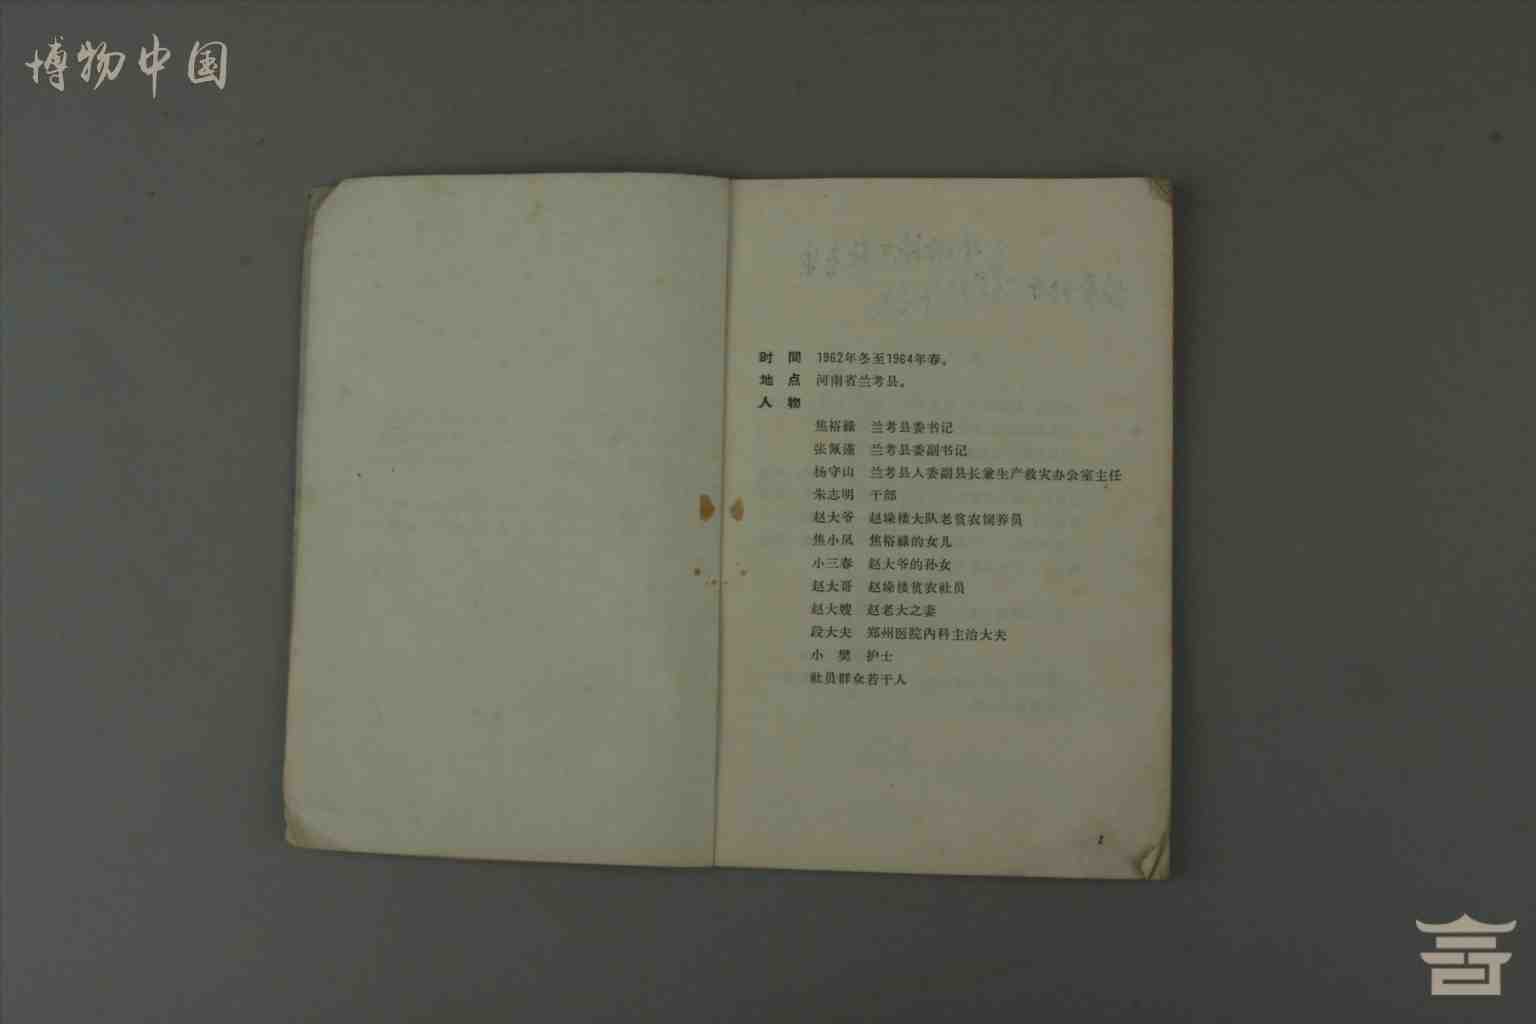 博物中国
时 間 1962年冬至1964年春。
地 点 河南省兰考县。
人 物
焦裕祿 兰考县委书记
张佩谨 兰考县委副书记
杨守山 兰考县人委副县长兼生产救灾办公室主任
朱志明 干部
赵大爷 赵垛楼大队老贫农饲养员
焦小凤 焦裕祿的女儿
小三春 赵大爷的孙女
赵大哥 赵垛楼贫农社员
赵大嫂 赵老大之妻
段大夫 郑州医院内科主治大夫
小 樊 护士
社员群众若干人
1